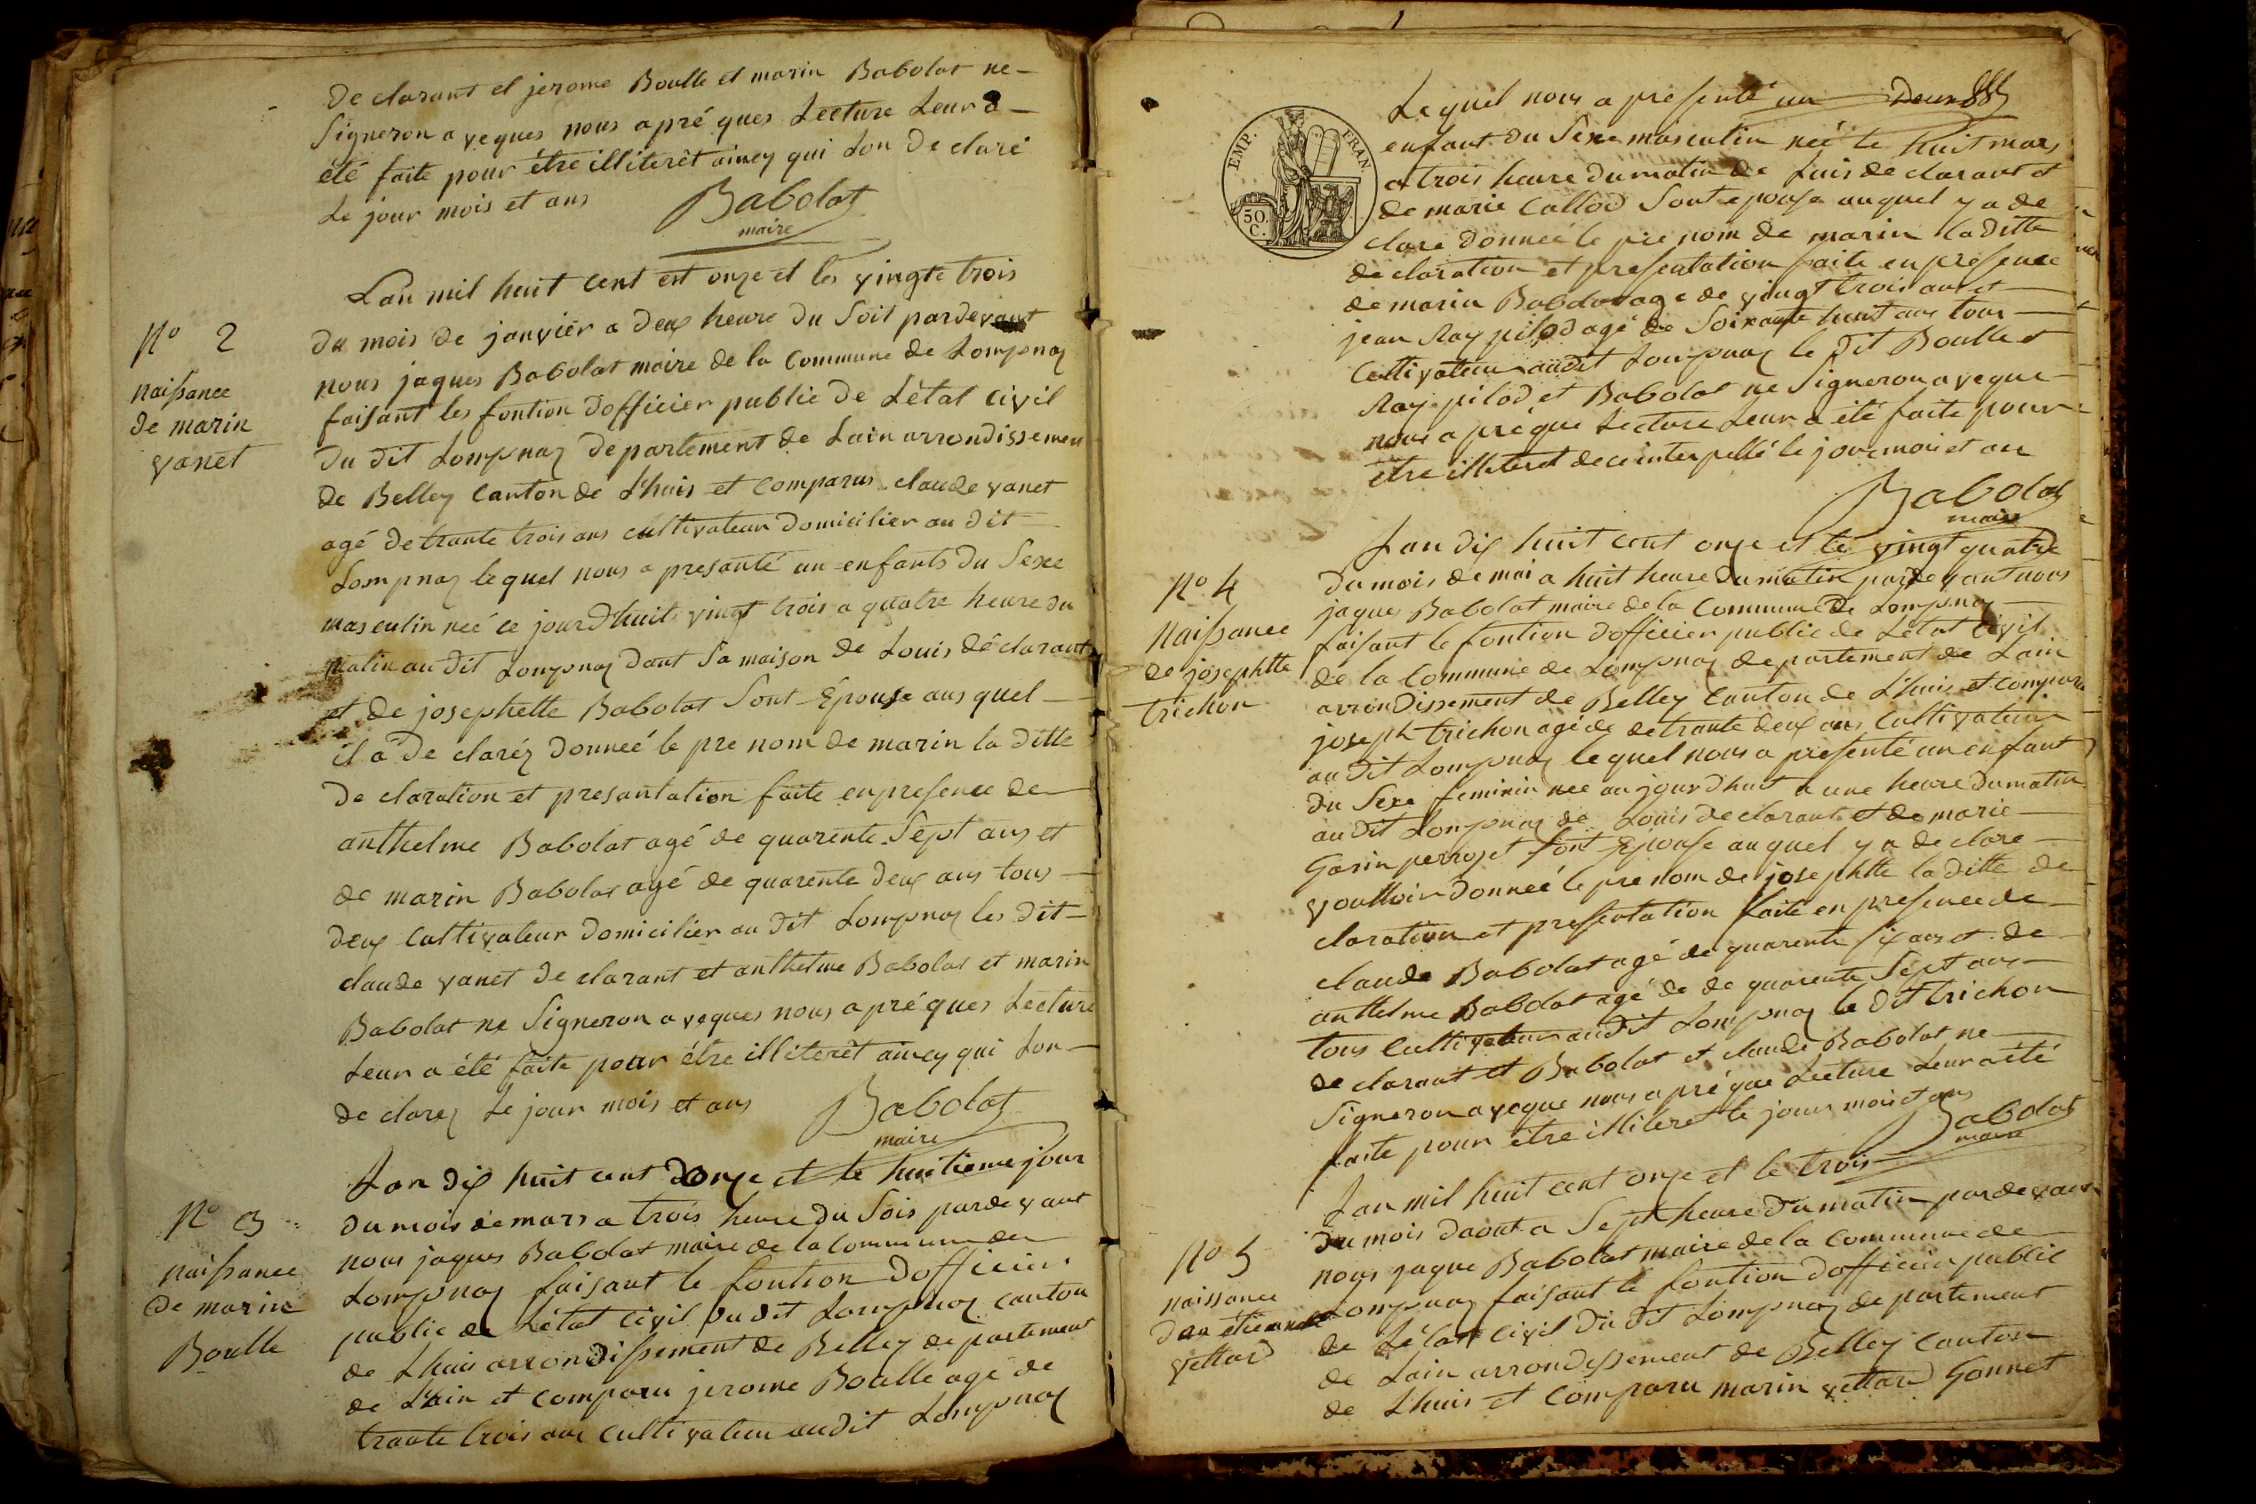 De clarant et jerome Boulle et marin Babolat ne
Signeron a veques nous a pré ques Lecture Leur a
été faite pour être illiterêt aincy qui Lon De claré
Le jour mois et ans
Babolat
maire
Lan mil huit cent et onze et les vingte trois
No 2
naissance
de marin
vanet
du mois de janvier a deux heure du Soit pardevant
nous jaques Babolat maire de la Commune de Lompnaz
faisant les fontion Dofficier public de L'état Civil
du dit Lompnaz Departement de Lain arrondissemen
de Belley Canton de L'huis et Comparus claude vanet
agé de trante trois ans cultivateur Domicilier au dit
Lompnaz lequel nous a presanté un enfants du Sexe
masculin neé ce jourdhuit vingt trois a quatre heure du
matin au dit Lompnaz dant Sa maison de Louis déclarant
et de josephette Babolat Sont Épouse ausquel
il a De claréz Donneé le pre nom de marin la ditte
De claration et presantation faite en presence de
anthelme Babolat agé de quarente Sept ans et
de marin Babolat agé de quarente deux ans tous
deux Cultivateur Domicilier au dit Lompnaz les dit
claude vanet de clarant et anthelme Babolat et marin
Babolat ne Signeron a veques nous a pré ques Lecture
Leur a été faite pour être illiterêt aincy qui Lon
de clarez Le jour mois et ans
Babolat
maire
Lan dix huit cent Donze et le huitieme jour
No 3
naissance
de marin
Boulle
du mois de mars a trois heure du Sois pardevant
nous jaques Babolat maire de la Commune de
Lompnaz faisant le fontion Dofficier
public de L'état Civil du dit Lompnaz canton
de Lhuis arrondissement de Belley departement
de L'ain et comparu jerome Boulle agé de
trante trois ans cultivateur audit Lompnaz
Lequel nous a presenté un
EMP. FRAN.
50 C.
enfant du Sexe masculin neé le huit mars
a trois heure du matin de Luis de clarant et
de marie Callod Sont epouse auquel y a de
claré donneé le pre nom de marin la ditte
de claration et presentation faite en presence
de marin Babolat agé de vingt trois ans et
jean Ray pilod agé de Soixante huit ans tous
Cultivateur audit Lompnaz le dit Boulle et
Ray pilod et Babolat ne Signeron a veque
nous a pré que Lecture Leur a été faite pour
être illiteret de ce interpellé le jour mois et an
Babolat
maire
Lan dix huit cent onze et le vingt quatre
No 4
naissance
de josephtte
trichon
du mois de mai a huit heure du matin pardevant nous
jaque Babolat maire de la Commune de Lompnaz
faisant le fontion Dofficier public de L'état Civil
de la Commune de Lompnaz departement de Lain
arrondissement de Belley Canton de L'huis et comparu
joseph trichon agé de de trante deux ans Cultivateur
au dit Lompnaz lequel nous a presenté un enfant
du Sexe feminin neé au jourdhuit a une heure du matin
au dit Lompnaz de Louis declarant et de marie
Gorin perrozet Sont Épouse auquel y a de clare
voulloir donneé le pre nom de josephtte la ditte de
claration et presentation faite en presence de
claude Babolat agé de quarente six ans et de
anthelme Babolat agé de de quarente Sept ans
tous Cultivateur audit Lompnaz le dit trichon
de clarant et Babolat et claude Babolat ne
Signeron a veque nous a pré que Lecture Leur a été
faite pour être illiteret le jour mois et ans
Babolat
maire
Lan mil huit cent onze et le trois
No 5
naissance
vettard
du mois daout a Sept heure du matin pardevant
nous jaque Babolat maire de la Commune de
Lompnaz faisant le fontion Dofficier public
de L'état Civil du dit Lompnaz de partement
de Lain arrondissement de Belley Canton
de L'huis et Comparu marin vettard Gonnet